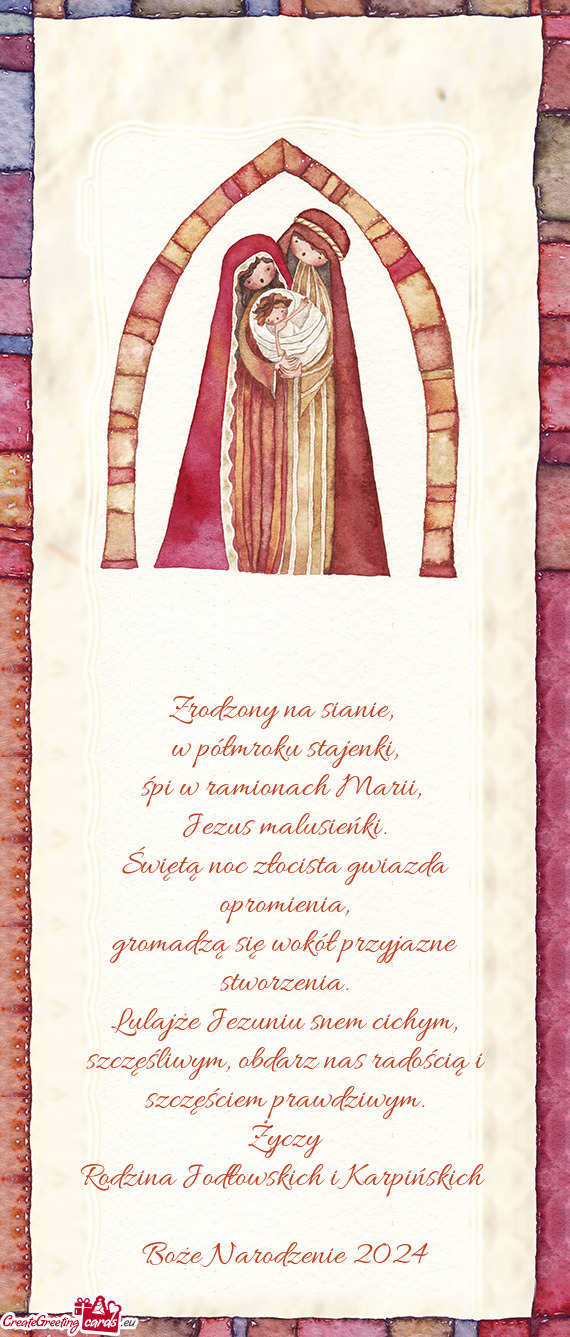 Zrodzony na sianie,
w półmroku stajenki,
śpi w ramionach Marii,
Jezus malusieńki.
Świętą noc złocista gwiazda
opromienia,
gromadzą się wokół przyjazne
stworzenia.
Lulajże Jezuniu snem cichym,
szczęśliwym, obdarz nas radością i
szczęściem prawdziwym.
Życzy
Rodzina Jodłowskich i Karpińskich
Boże Narodzenie 2024
CreateGreeting cards .eu